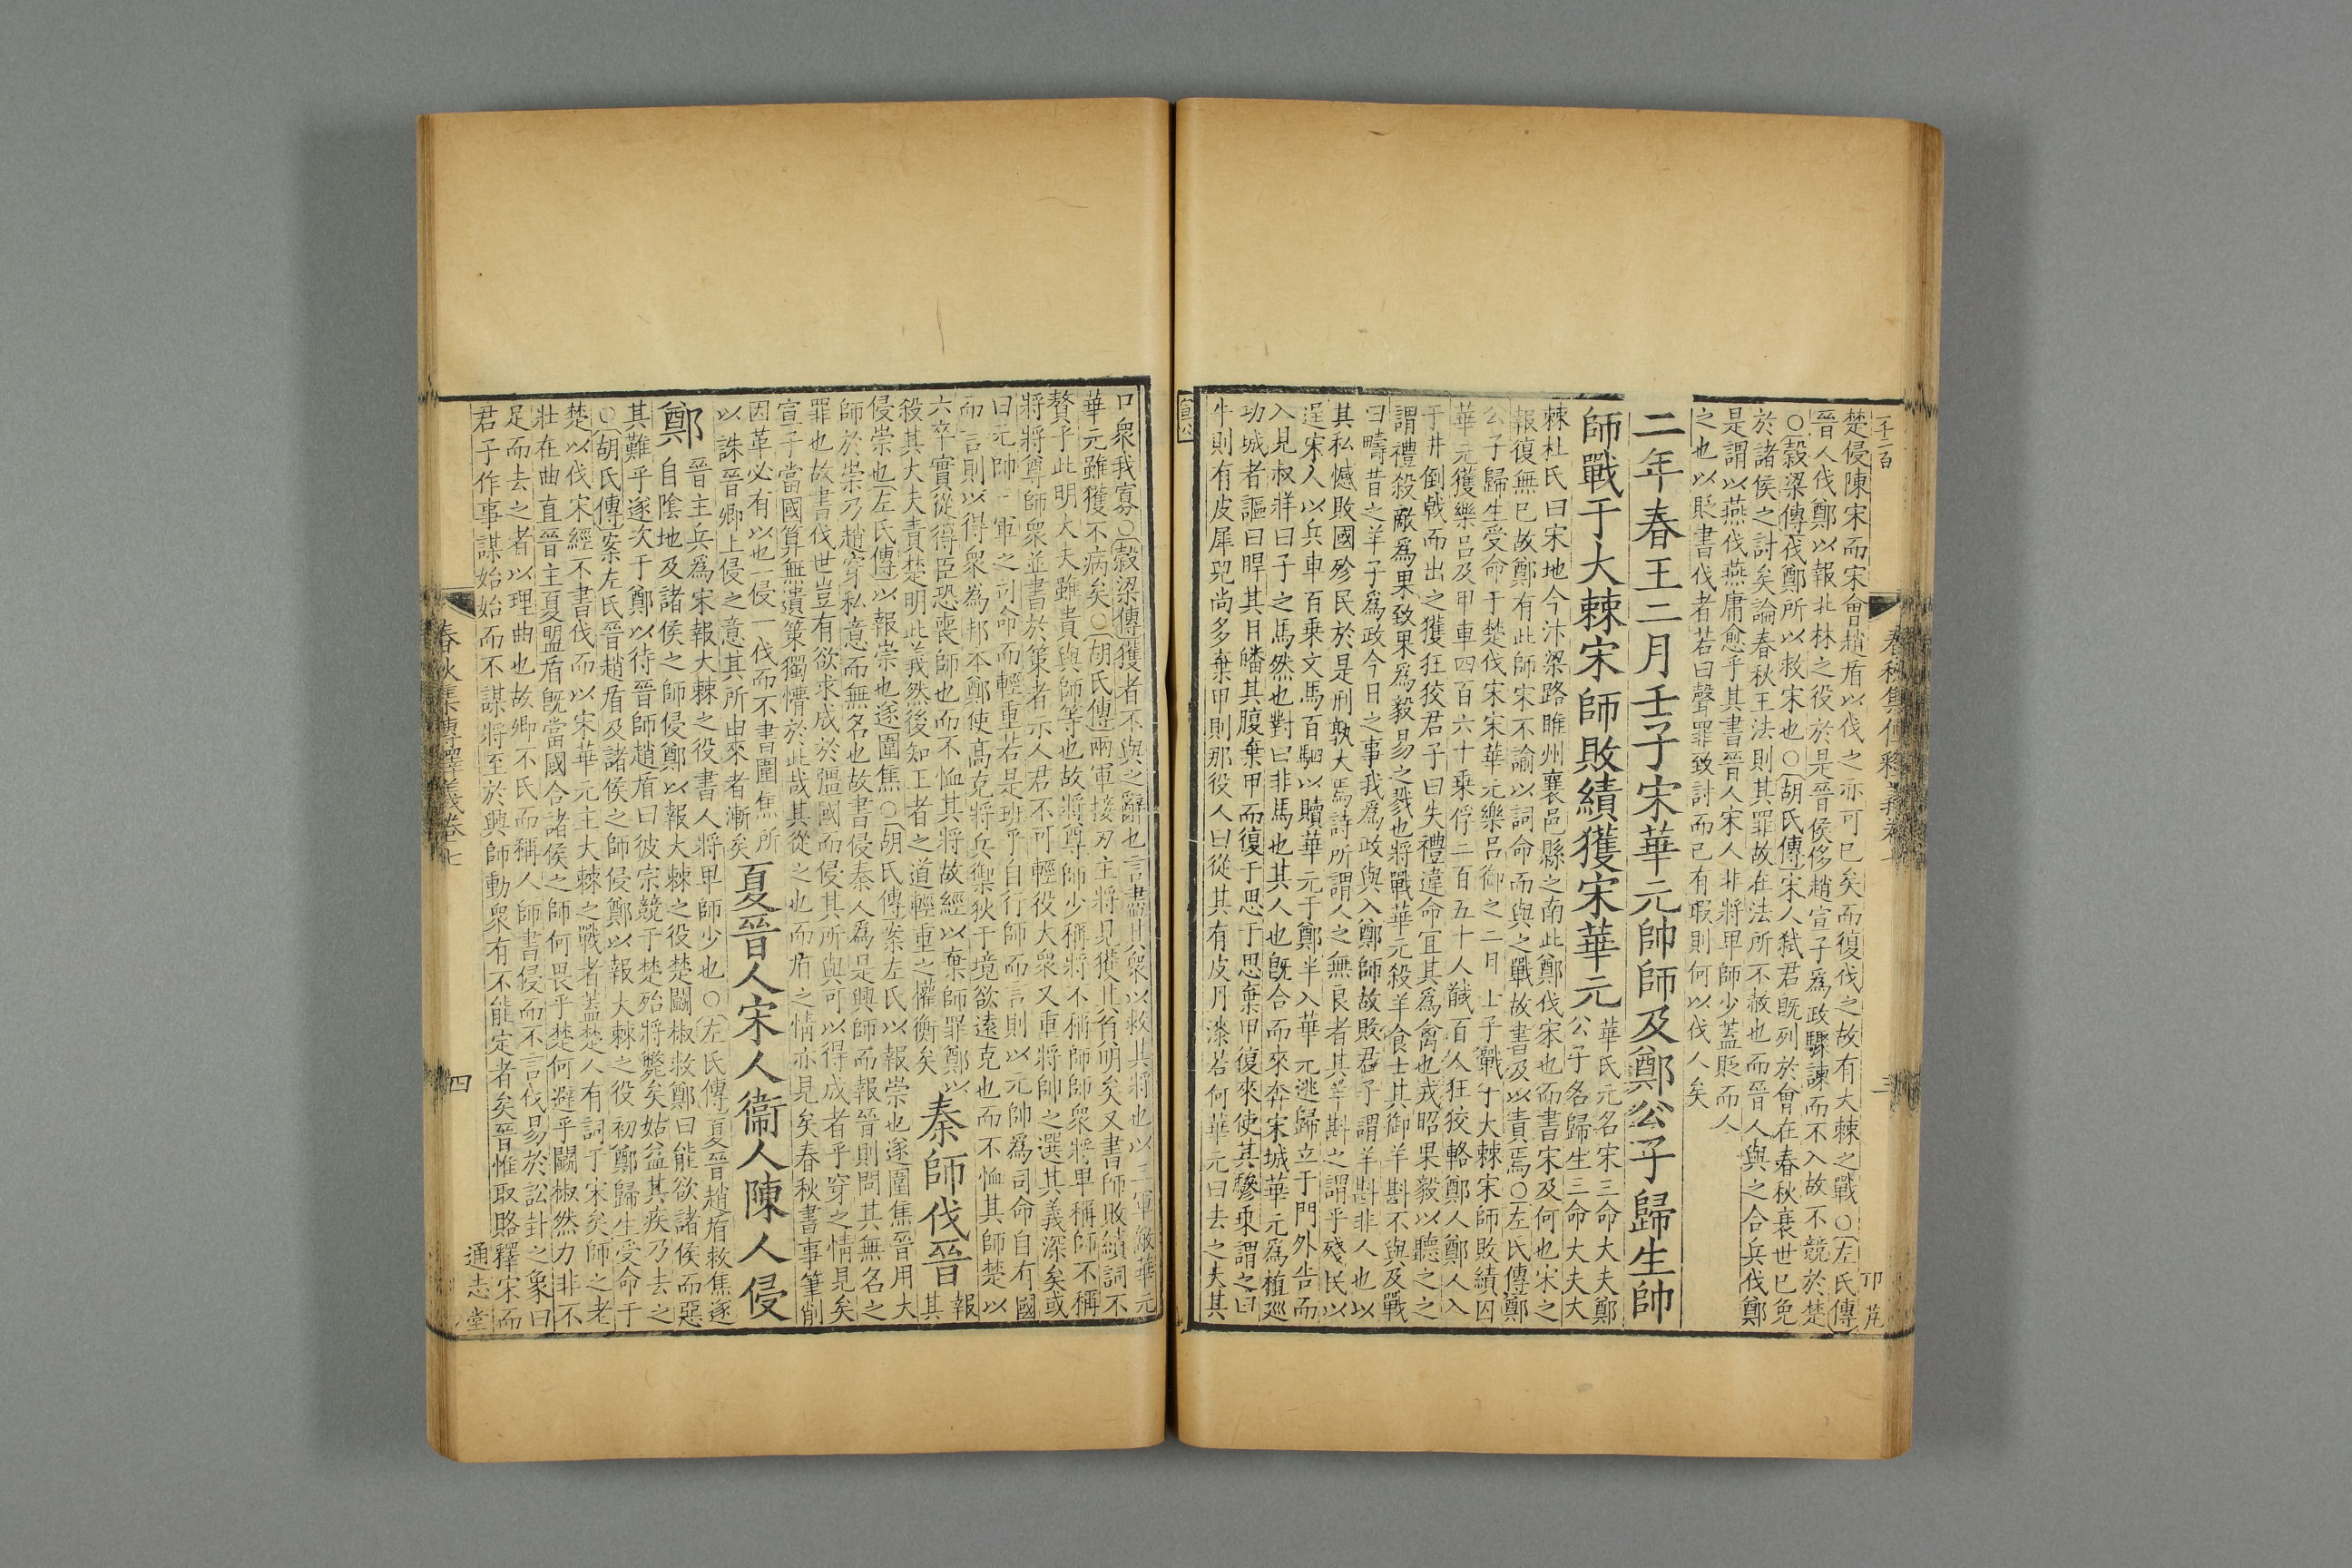 楚侵陳宋而宋會趙盾以伐之亦可已矣而復伐之故有大棘之戰○左氏傳
晉人伐鄭以報北林之役於是晉侯侈趙宣子爲政驟諫而不入故不競於楚
○穀梁傳伐鄭所以救宋也○胡氏傳宋人弑君旣列於會在春秋衰世已免
於諸侯之討矣論春秋王法則其罪故在法所不赦也而晉人與之合兵伐鄭
是謂以燕伐燕庸愈乎其書晉人宋人非將卑師少蓋貶而人
之也以貶書伐者若曰聲罪致討而已有瑕則何以伐人矣
二年春王二月壬子宋華元帥師及鄭公子歸生帥
師戰于大棘宋師敗績獲宋華元
華氏元名宋三命大夫鄭
公子名歸生三命大夫大
棘杜氏曰宋地今汴梁路睢州襄邑縣之南此鄭伐宋也而書宋及何也宋之
報復無已故鄭有此師宋不諭以詞命而與之戰故書及以責焉○左氏傳鄭
公子歸生受命于楚伐宋宋華元樂呂御之二月壬子戰于大棘宋師敗績囚
華元獲樂呂及甲車四百六十乗俘二百五十人馘百人狂狡輅鄭人鄭人入
于井倒戟而出之獲狂狡君子曰失禮違命宜其爲禽也戎昭果毅以聽之之
謂禮殺敵爲果致果爲毅易之戮也將戰華元殺羊食士其御羊斟不與及戰
曰疇昔之羊子爲政今日之事我爲政與入鄭師故敗君子謂羊斟非人也以
其私憾敗國殄民於是刑孰大焉詩所謂人之無良者其羊斟之謂乎殘民以
逞宋人以兵車百乗文馬百駟以贖華元于鄭半入華元逃歸立于門外告而
入見叔牂曰子之馬然也對曰非馬也其人也旣合而來奔宋城華元爲植巡
功城者謳曰睅其目皤其腹棄甲而復于思于思棄甲復來使其驂乗謂之曰
牛則有皮犀兕尚多棄甲則那役人曰從其有皮丹漆若何華元曰去之夫其
口衆我寡○穀梁傳獲者不與之辭也言盡其衆以救其將也以三軍敵華元
華元雖獲不病矣○胡氏傳兩軍接刃主將見獲其負明矣又書師敗績詞不
贅乎此明大夫雖貴與師等也故將尊師少稱將不稱師師衆將卑稱師不稱
將將尊師衆並書於策者示人君不可輕役大衆又重將帥之選其義深矣或
曰元帥三軍之司命而輕重若是班乎自行師而言則以元帥爲司命自有國
而言則以得衆為邦本鄭使高克將兵禦狄于境欲遠克也而不恤其師楚以
六卒實從得臣恐喪師也而不恤其將故經以棄師罪鄭以
殺其大夫責楚明此義然後知王者之道輕重之權衡矣
秦師伐晉
報
其
侵崇也左氏傳以報崇也遂圍焦○胡氏傳案左氏以報崇也遂圍焦晉用大
師於崇乃趙穿私意而無名也故書侵秦人爲是興師而報晉則問其無名之
罪也故書伐世豈有欲求成於彊國而侵其所與可以得成者乎穿之情見矣
宣子當國算無遺策獨懵於此哉其從之也而盾之情亦見矣春秋書事筆削
因革必有以也一侵一伐而不書圍焦所
以誅晉卿上侵之意其所由來者漸矣
夏晉人宋人衞人陳人侵
鄭
晉主兵爲宋報大棘之役書人將卑師少也○左氏傳夏晉趙盾救焦遂
自陰地及諸侯之師侵鄭以報大棘之役楚鬬椒救鄭曰能欲諸侯而惡
其難乎遂次于鄭以待晉師趙盾曰彼宗競于楚殆將斃矣姑益其疾乃去之
○胡氏傳案左氏晉趙盾及諸侯之師侵鄭以報大棘之役初鄭歸生受命于
楚以伐宋經不書伐而以宋華元主大棘之戰者蓋楚人有詞于宋矣師之老
壯在曲直晉主夏盟盾旣當國合諸侯之師何畏乎楚何避乎鬬椒然力非不
足而去之者以理曲也故卿不氏而稱人師書侵而不言伐易於訟卦之象曰
君子作事謀始始而不謀將至於興師動衆有不能定者矣晉惟取賂釋宋而
春秋集傳釋義卷七
四
通志堂